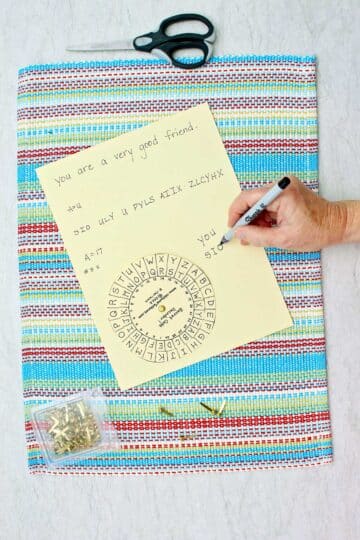 you are a very good friend.
you
SIO ULY U PYLS AIIX ZLCYHX
A=17
you
SIO
Sharpie
A B C D E F G H I J K L M N O P Q R S T U V W X Y Z
Secret Code